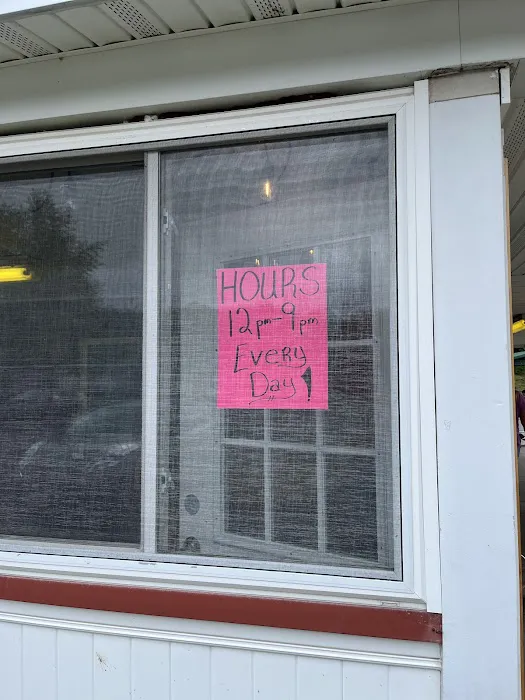 HOURS
12pm-9pm
Every
Day!